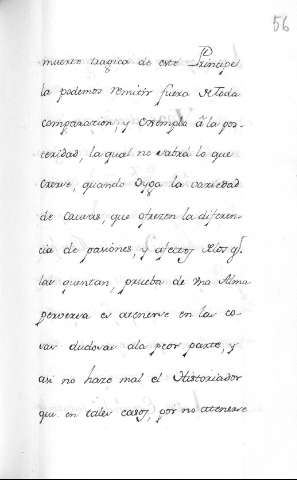 56
muerte tragica de este Principe
la podemos remitir fuera de toda
comparacion, y exemplo â la pos-
teridad, la qual no sabrá lo que
creerse, quando oyga la variedad
de causas, que ofrezen la diferen-
cia de pasiones, y afectos de los q.
las quentan, prueba de una Alma
perversa es atenerse en las co-
sas dudosas ala peor parte, y
asi no haze mal el Historiador
que en tales casos, por no atenerse